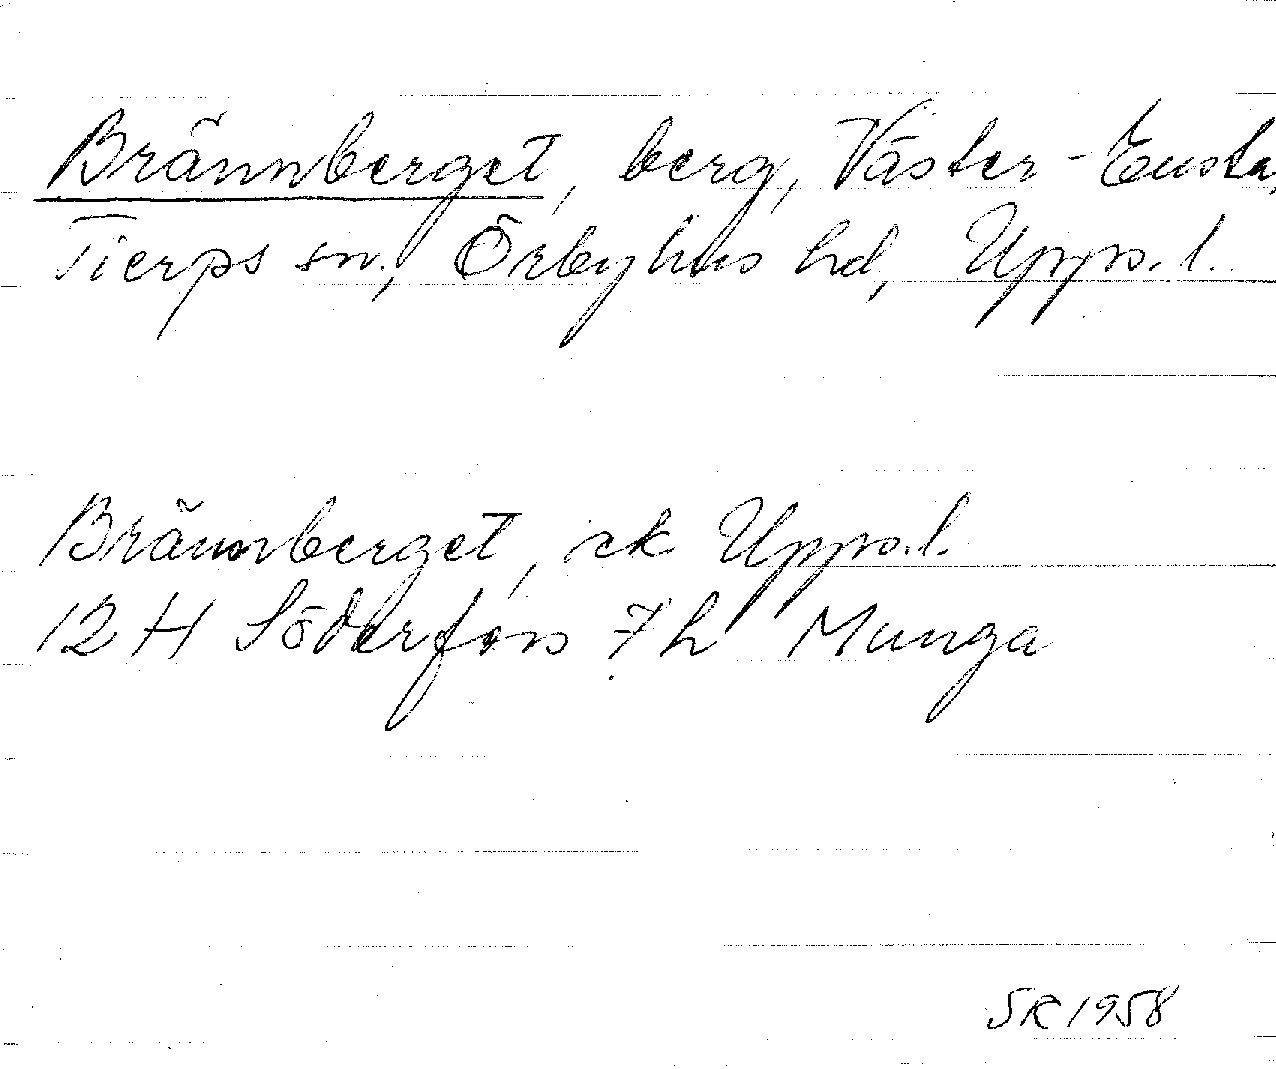 Brännberget, berg, Väster-Ensta,
Tierps sn, Örbyhus hd, Upps.l.
Brännberget, ek Upps.l.
12 H Söderfors 7h Munga
SR 1958